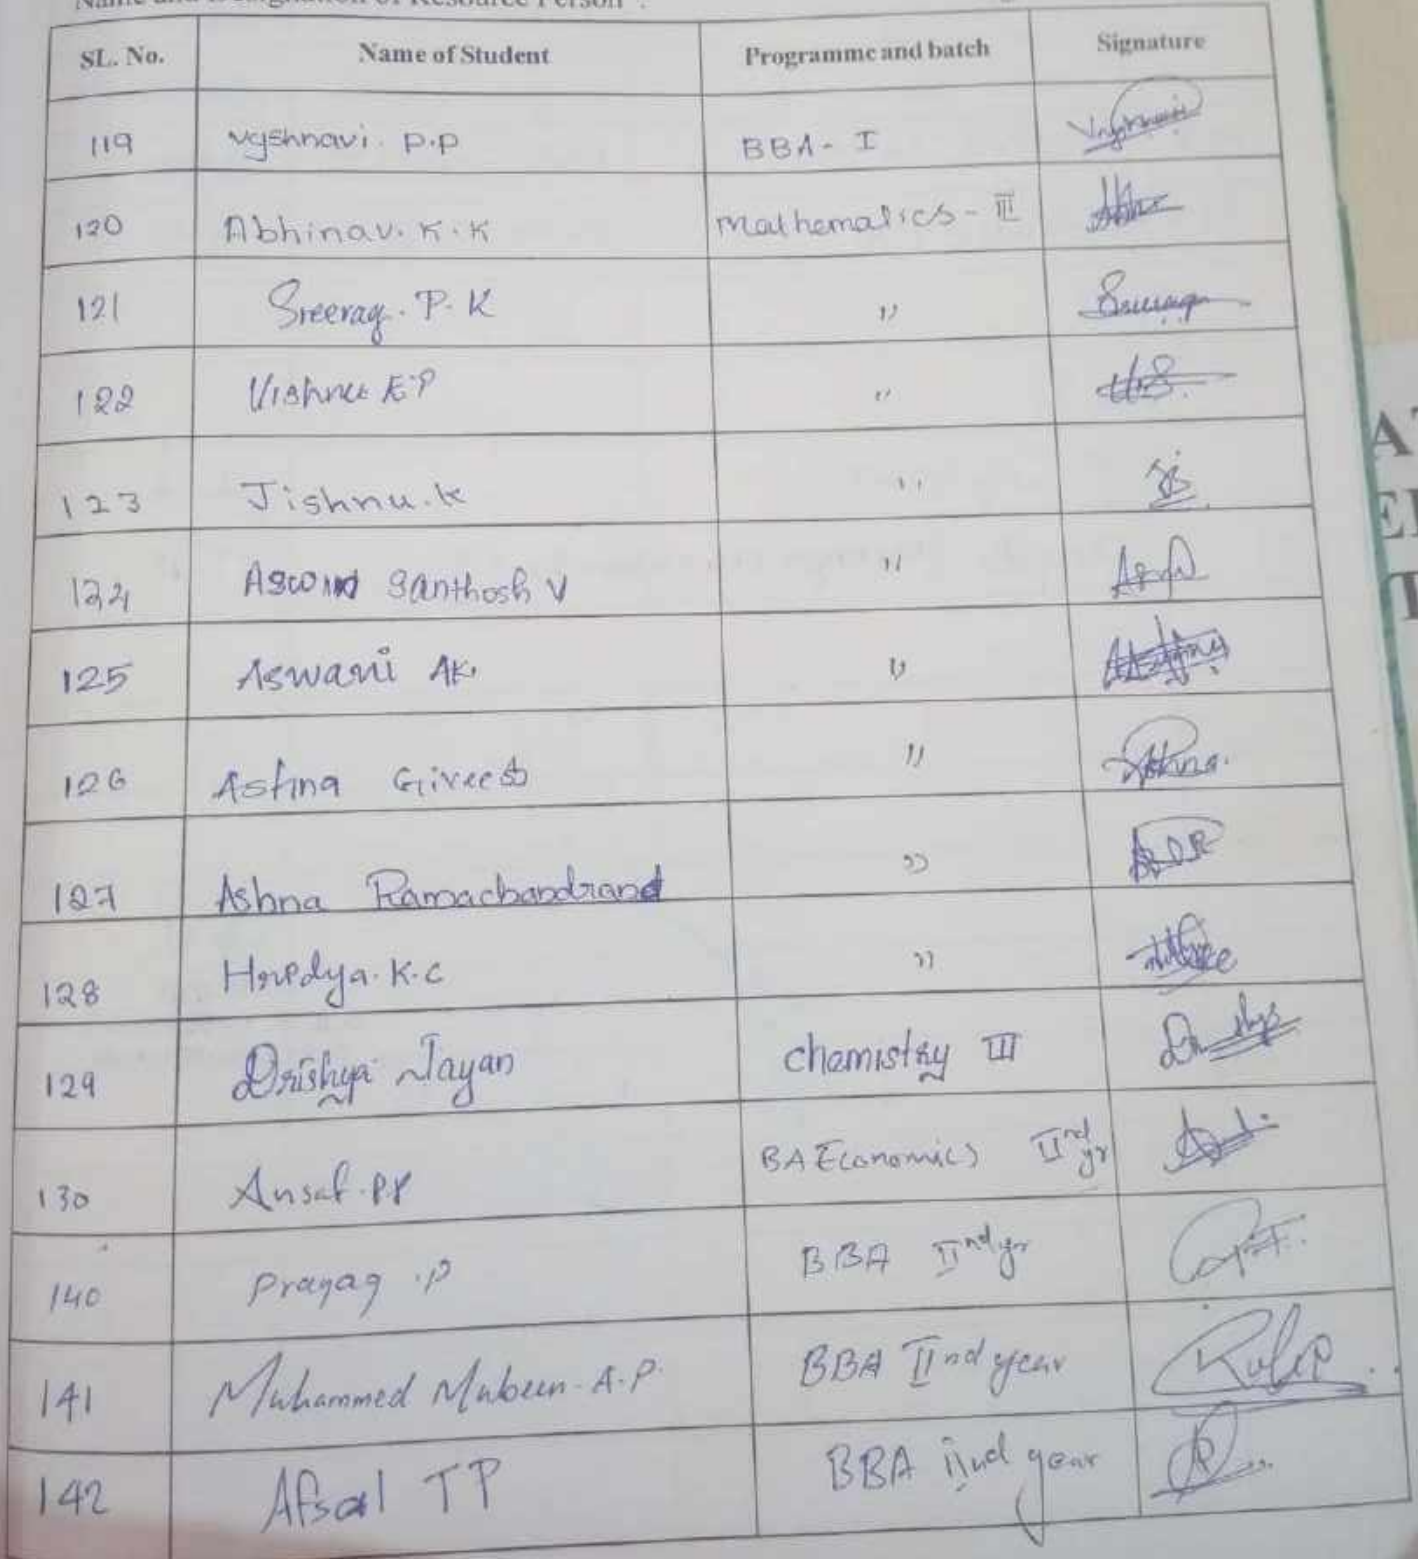 SL. No. Name of Student Programme and batch Signature
119 Vyshnavi. P.P BBA - I
120 Abhinav. K.K Mathematics - III
121 Sreerag. P.K "
122 Vishnu E.P "
123 Jishnu. k "
124 Santhosh V "
125 Aswani AK. "
126 Ashna "
127 Ashna "
128 Hridya. K.C "
129 Drishya Jayan Chemistry III
130 Ansaf. PP BA Economics IInd yr
140 Prayag .P BBA IInd yr
141 Muhammed Mubeen. A.P. BBA IInd year
142 Afsal TP BBA iind year